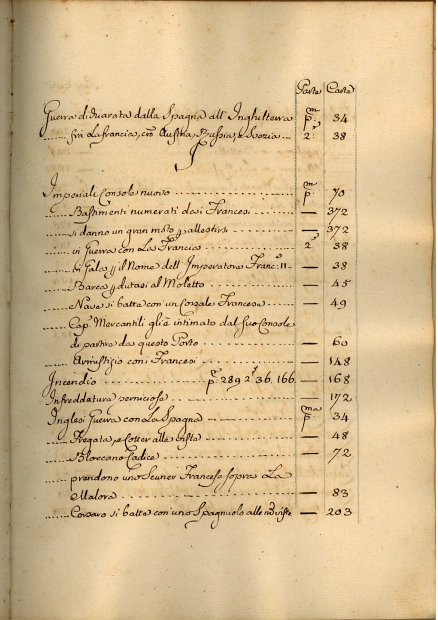 Parte Carta
Guerra dichiarata dalla Spagna all' Inghilterra p:ma 34
frà La francia, cro Austria, Russia, e Svezia ... 2:a 38
I
Imperiali Console nuovo p:ma 70
Bastimenti numerati dai Francesi — 372
si danno un gran moto p allestirsi — 372
in Guerra con La Francia 2:a 38
in Gala p il Nome dell' Imperatore Franc:o II — 38
Barca perdutasi al Moletto — 45
Nave si batte con un Corsale Francese — 49
Cap:ni Mercantili gl'è intimato dal suo Console
di partire da questo Porto — 60
Armistizio con i Francesi — 148
Incendio p:a 289 2:a 36. 166. — 168
Infreddatura perniciosa — 172
Inglesi Guerra con La Spagna p:ma 34
Fregata, e Cotter alle viste — 48
Bloccano Cadice — 72
prendono uno Scuner Francese sopra La
Malora — 83
Corsaro si batte con uno Spagnuolo alle viste — 203